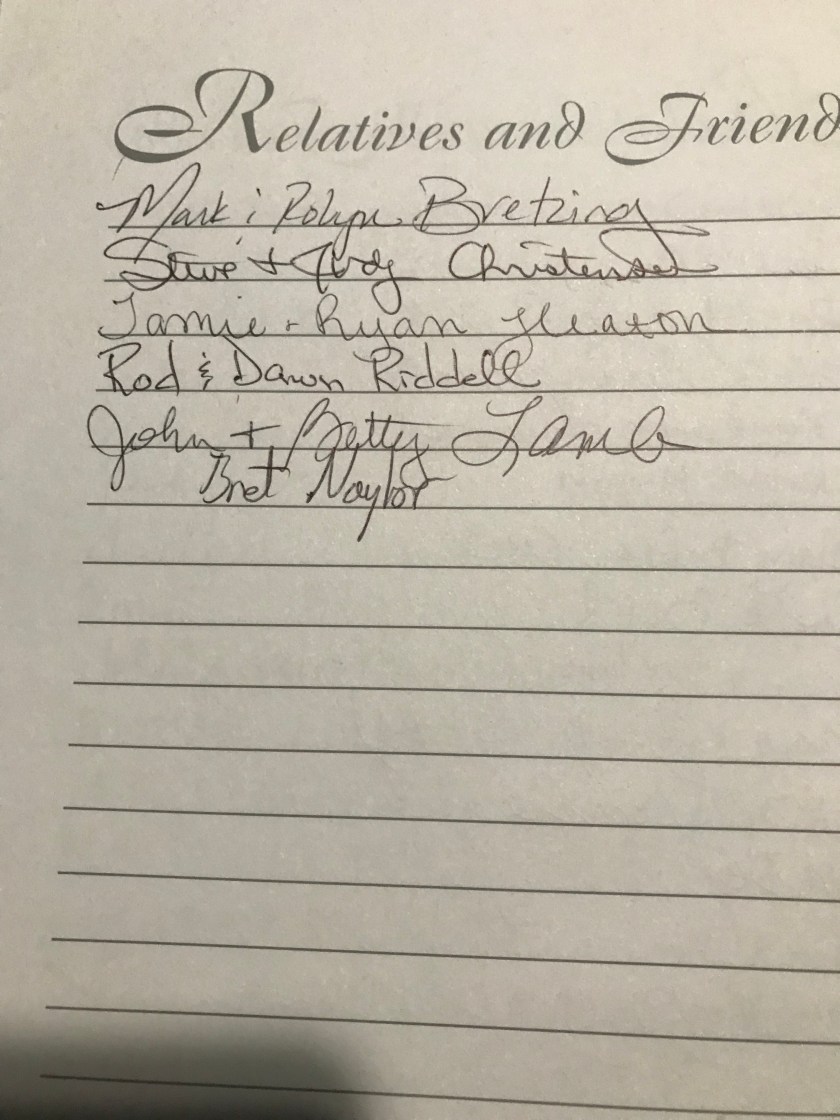 Relatives and Friend
Mark & Robyn Bretzing
Steve + Judy Christensen
Jamie + Ryan Heaton
Rod & Dawn Riddell
John + Betty Lamb
Bret Naylor